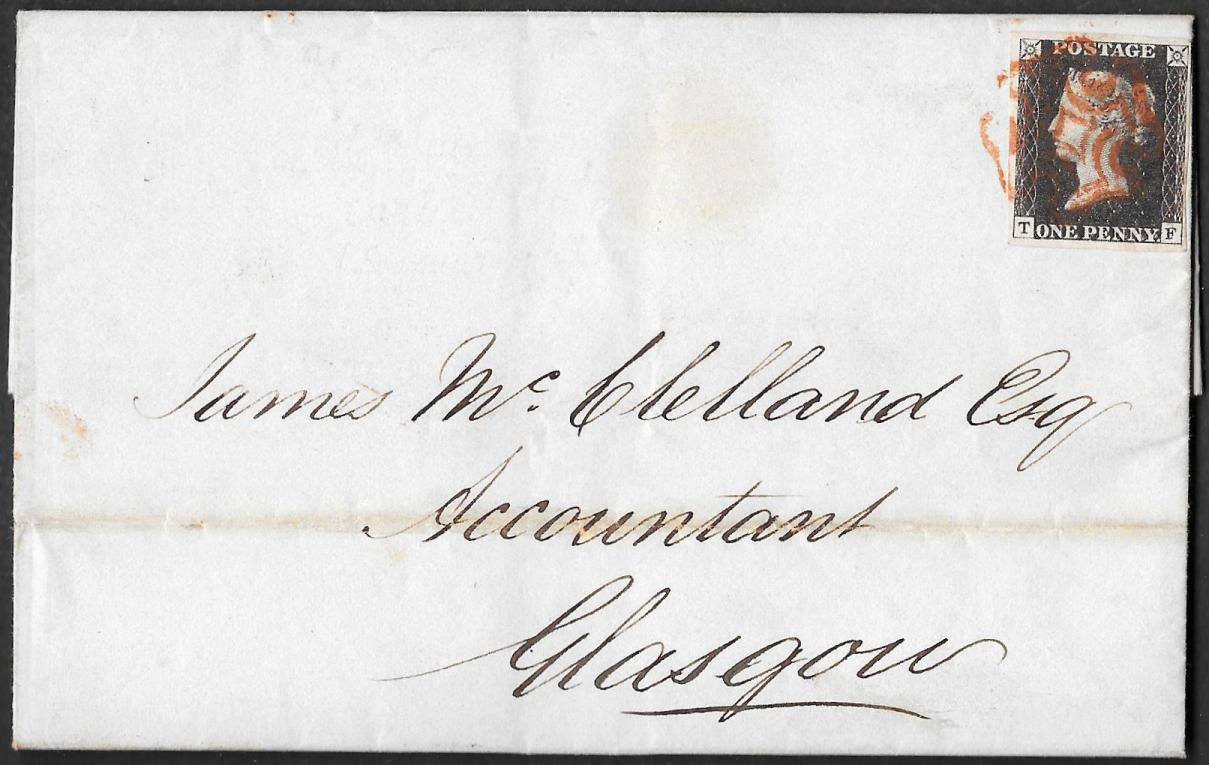 POSTAGE
T ONE PENNY. F
James Mc. Clelland Esq
Accountant
Glasgow